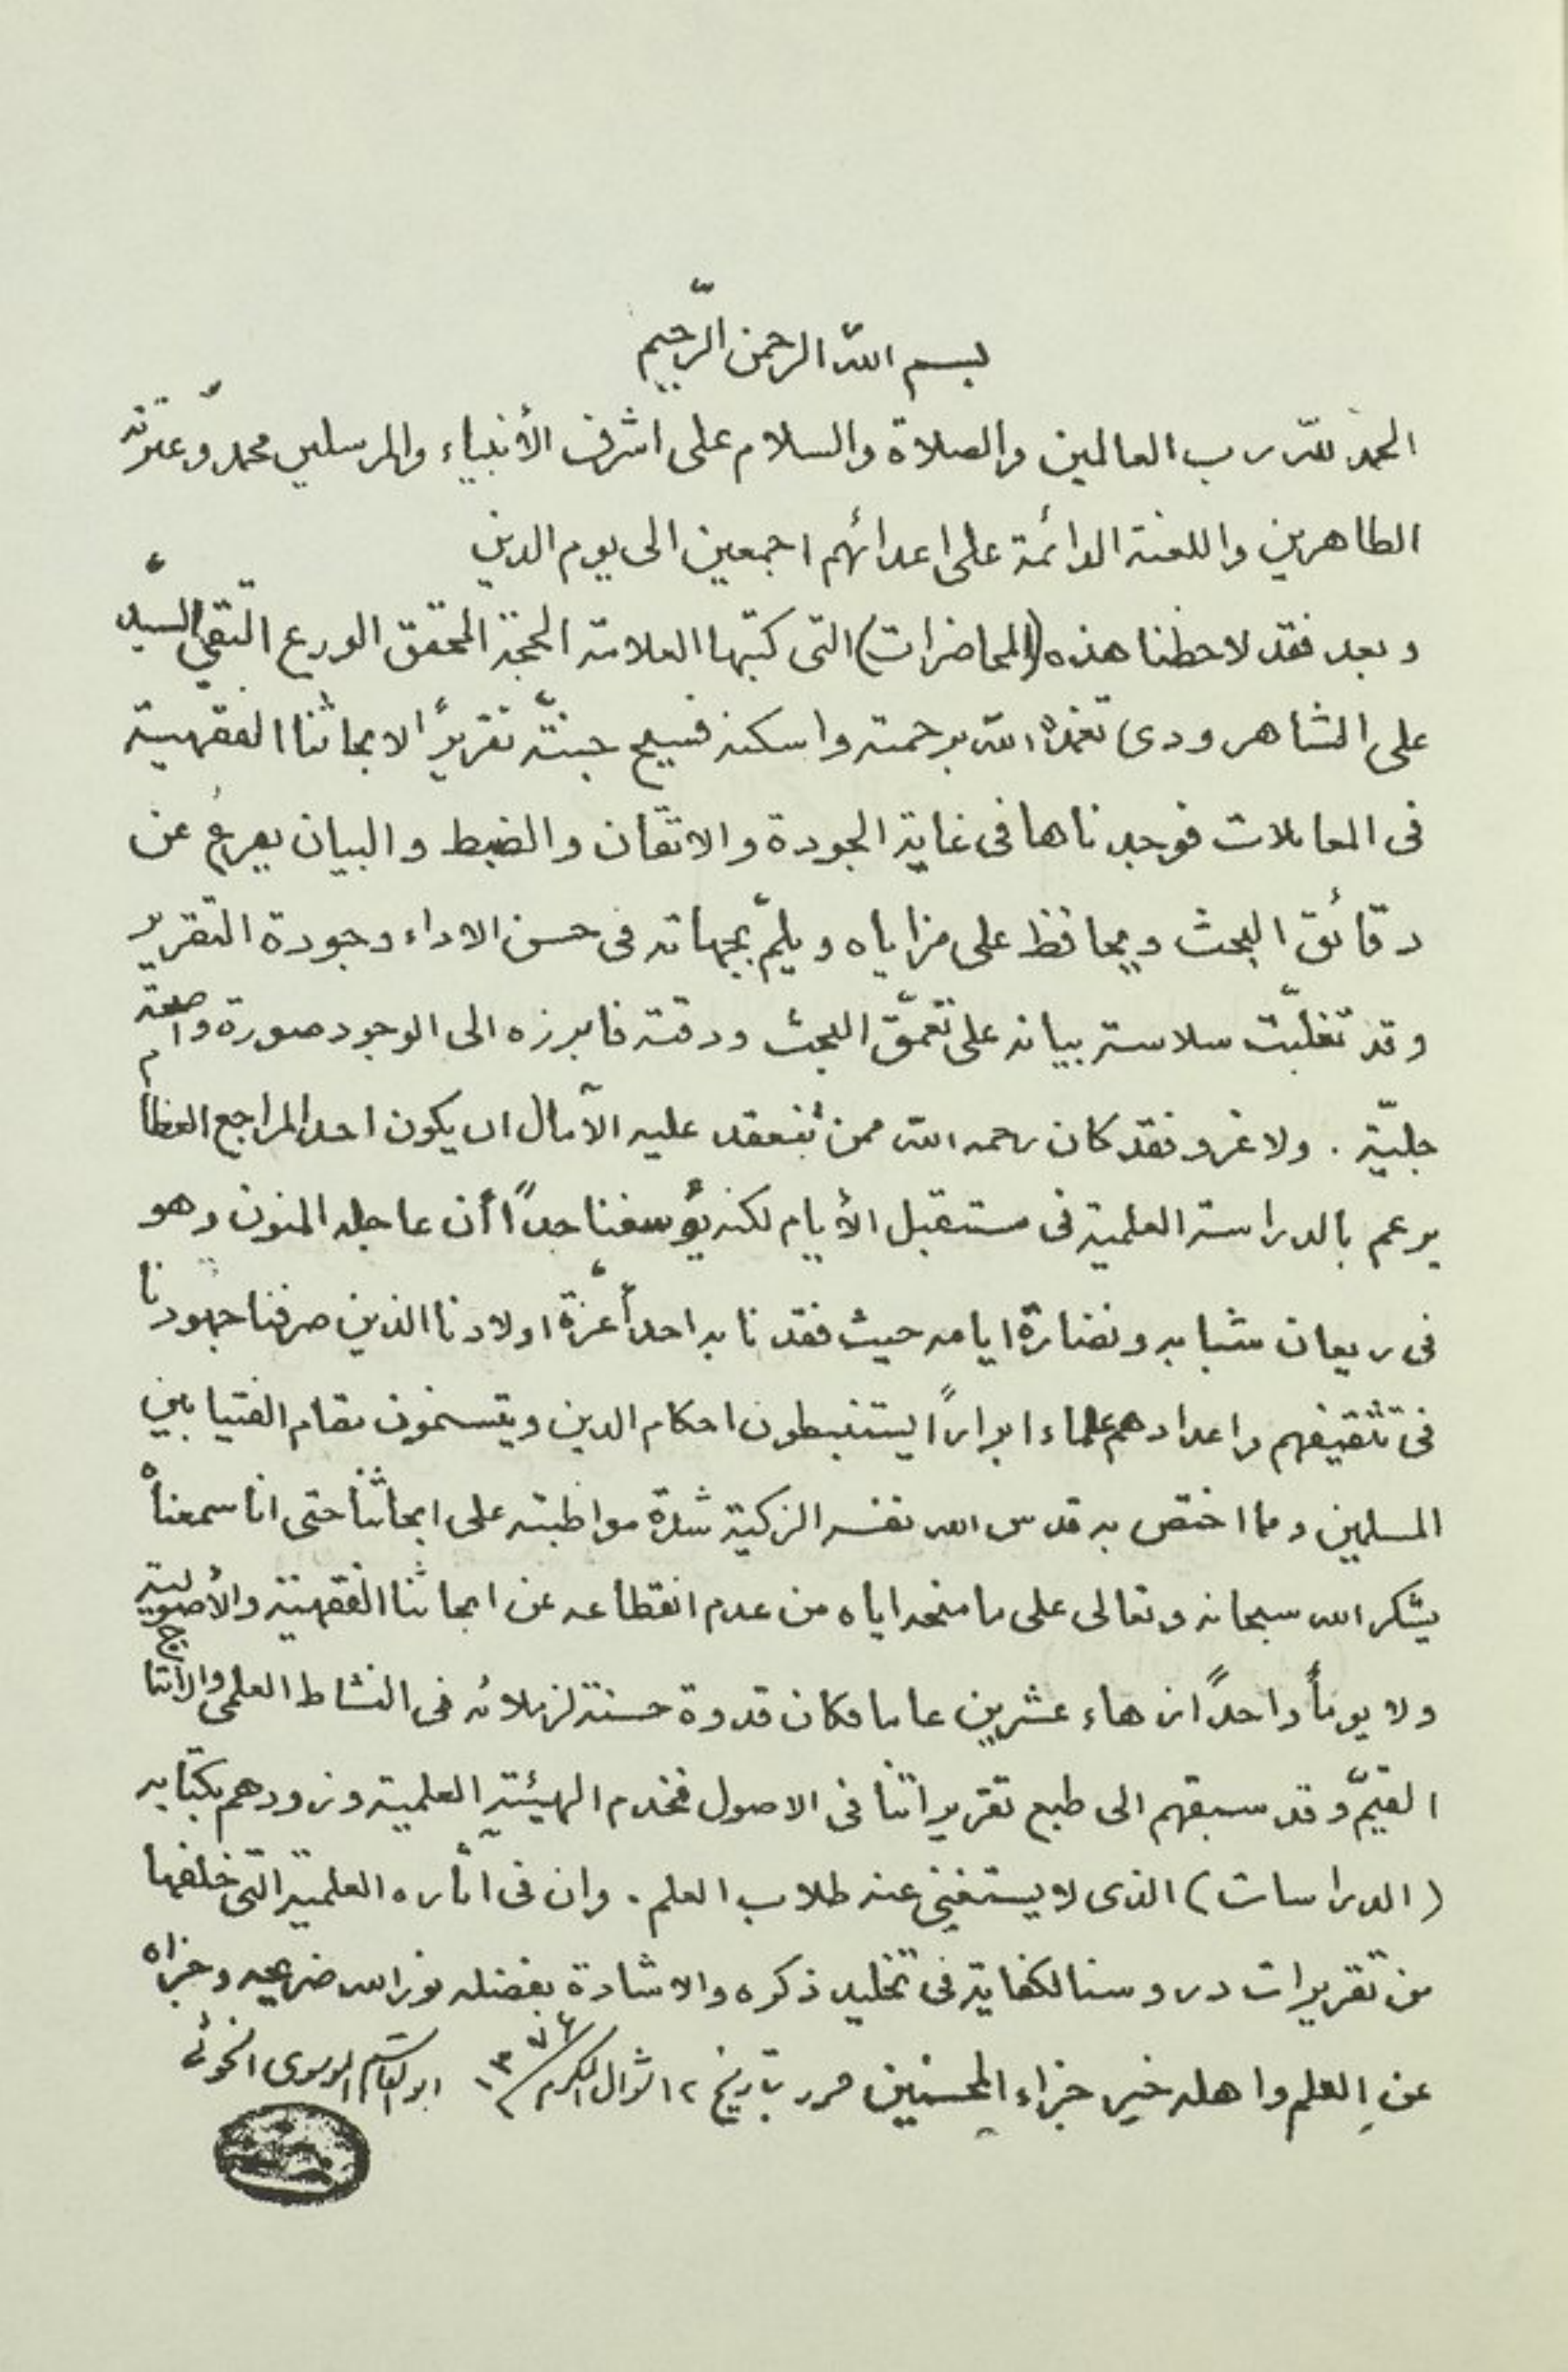 بسم الله الرحمن الرّحيم
الحمد لله رب العالمين والصلاة والسلام على اشرف الأنبياء والمرسلين محمد وعترته
الطاهرين واللعنة الدائمة على اعدائهم اجمعين الى يوم الدين
وبعد فقد لاحظنا هذه (المحاضرات) التى كتبها العلامة الحجة المحقق الورع التقي السيّد
على الشاهرودى تغمده الله برحمته واسكنه فسيح جنته تقريراً لابحاثنا الفقهية
فى المعاملات فوجدناها فى غاية الجودة والاتقان والضبط والبيان يعرب عن
دقائق البحث ويحافظ على مزاياه ويلمّ بجهاته فى حسن الاداء وجودة التقرير
وقد تغلبّت سلاسة بيانه على تعمّق البحث ودقته فابرزه الى الوجود صورة واضحة
جليّة . ولا غرو فقد كان رحمه الله ممن تنعقد عليه الآمال ان يكون احد المراجع العظام
يزعم بالدراسة العلمية فى مستقبل الأيام لكنه يؤسفنا جداً أن عاجله المنون وهو
فى ريعان شبابه ونضارة ايامه حيث فقدنا به احد أعزّة اولادنا الذين صرفنا جهودنا
فى تثقيفهم واعدادهم علماء ابراراً يستنبطون احكام الدين ويتسنمون مقام الفتيا بين
المسلمين ومما اختص به قدس الله نفسه الزكية شدة مواظبته على ابحاثنا حتى انا سمعناه
يشكر الله سبحانه وتعالى على ما منحه اياه من عدم انقطاعه عن ابحاثنا الفقهية والأصولية
ولا يوماً واحداً زهاء عشرين عاما فكان قدوة حسنة لزملائه فى النشاط العلمى والانتاج
القيّم وقد سبقهم الى طبع تقريراتنا فى الاصول فخدم الهيئة العلمية وزودهم بكتابه
(الدراسات) الذى لا يستغنى عنه طلاب العلم . وان فى آثاره العلمية التى خلفها
من تقريرات دروسنا لكفاية فى تخليد ذكره والاشادة بفضله نور الله ضريحه وجزاه
عن العلم واهله خير جزاء المحسنين حرر بتاريخ ١٢ شوال المكرم ١٣٧٦ ابو القاسم الموسوى الخوئى